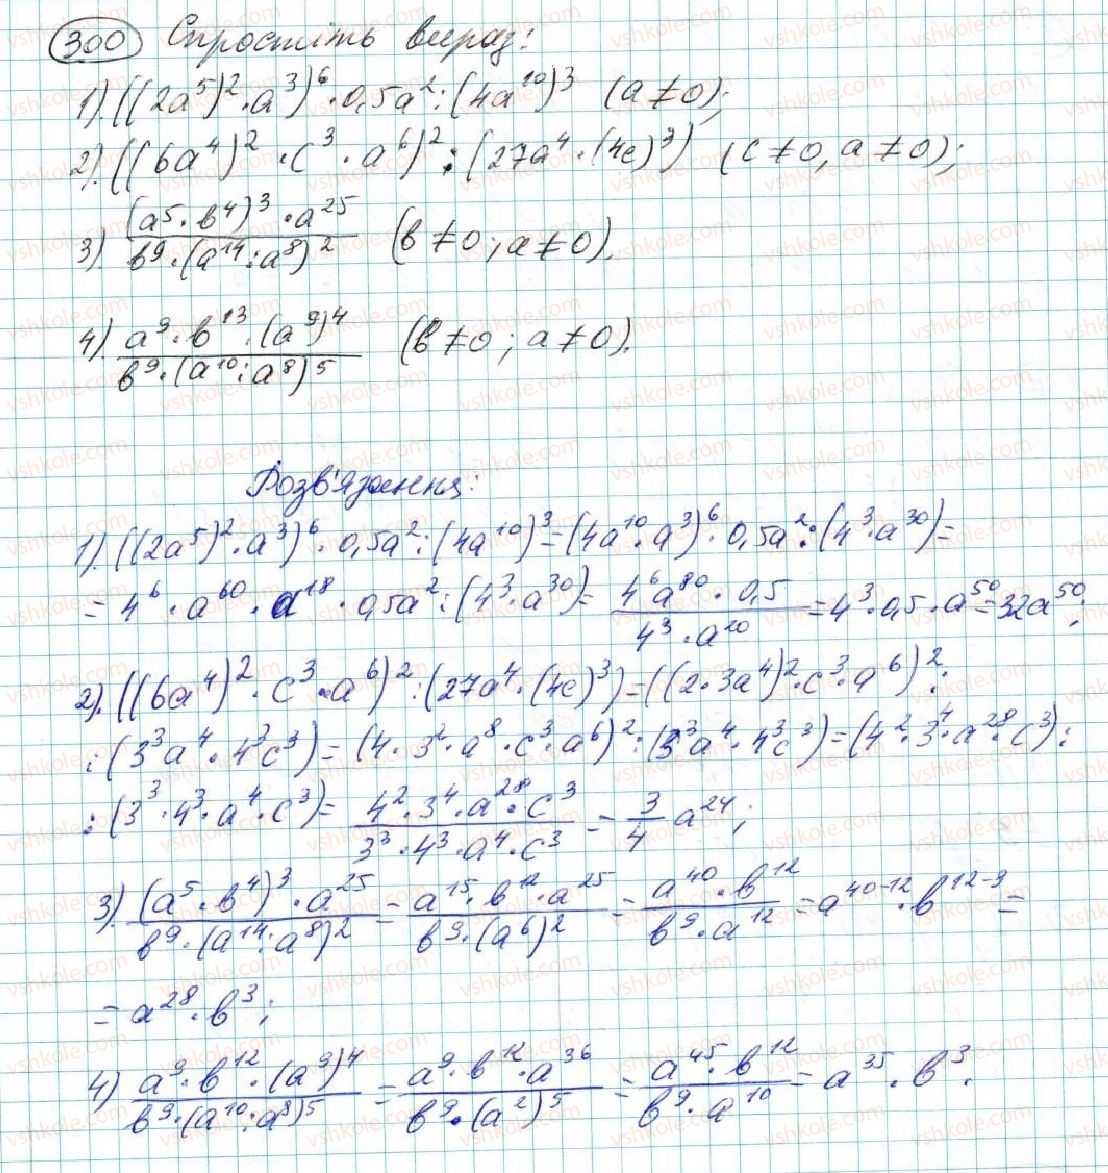 300 Спростіть вираз:
1). ((2a⁵)²·a³)⁶·0,5a²:(4a¹⁰)³ (a≠0);
2). ((6a⁴)²·c³·a⁶)²:(27a⁴·(4c)³) (c≠0, a≠0);
3). (a⁵·b⁴)³·a²⁵ / b⁹·(a¹⁴:a⁸)² (b≠0; a≠0).
4). a⁹·b¹³·(a⁹)⁴ / b⁹·(a¹⁰:a⁸)⁵ (b≠0; a≠0).
Розв'язання:
1). ((2a⁵)²·a³)⁶·0,5a²:(4a¹⁰)³=(4a¹⁰·a³)⁶·0,5a²:(4³·a³⁰)=
=4⁶·a⁶⁰·a¹⁸·0,5a²:(4³·a³⁰)= 4⁶a⁸⁰·0,5 / 4³·a²⁰ =4³·0,5·a⁵⁰=32a⁵⁰;
2). ((6a⁴)²·c³·a⁶)²:(27a⁴·(4c)³)=((2·3a⁴)²·c³·a⁶)²:
:(3³a⁴·4³c³)=(4·3²·a⁸·c³·a⁶)²:(3³a⁴·4³c³)=(4²·3⁴·a²⁸·c³):
:(3³·4³·a⁴·c³)= 4²·3⁴·a²⁸·c³ / 3³·4³·a⁴·c³ = 3/4 a²⁴;
3). (a⁵·b⁴)³·a²⁵ / b⁹·(a¹⁴:a⁸)² = a¹⁵·b¹²·a²⁵ / b⁹·(a⁶)² = a⁴⁰·b¹² / b⁹·a¹² =a⁴⁰⁻¹²·b¹²⁻⁹=
=a²⁸·b³;
4) a⁹·b¹²·(a⁹)⁴ / b⁹·(a¹⁰:a⁸)⁵ = a⁹·b¹²·a³⁶ / b⁹·(a²)⁵ = a⁴⁵·b¹² / b⁹·a¹⁰ =a³⁵·b³.